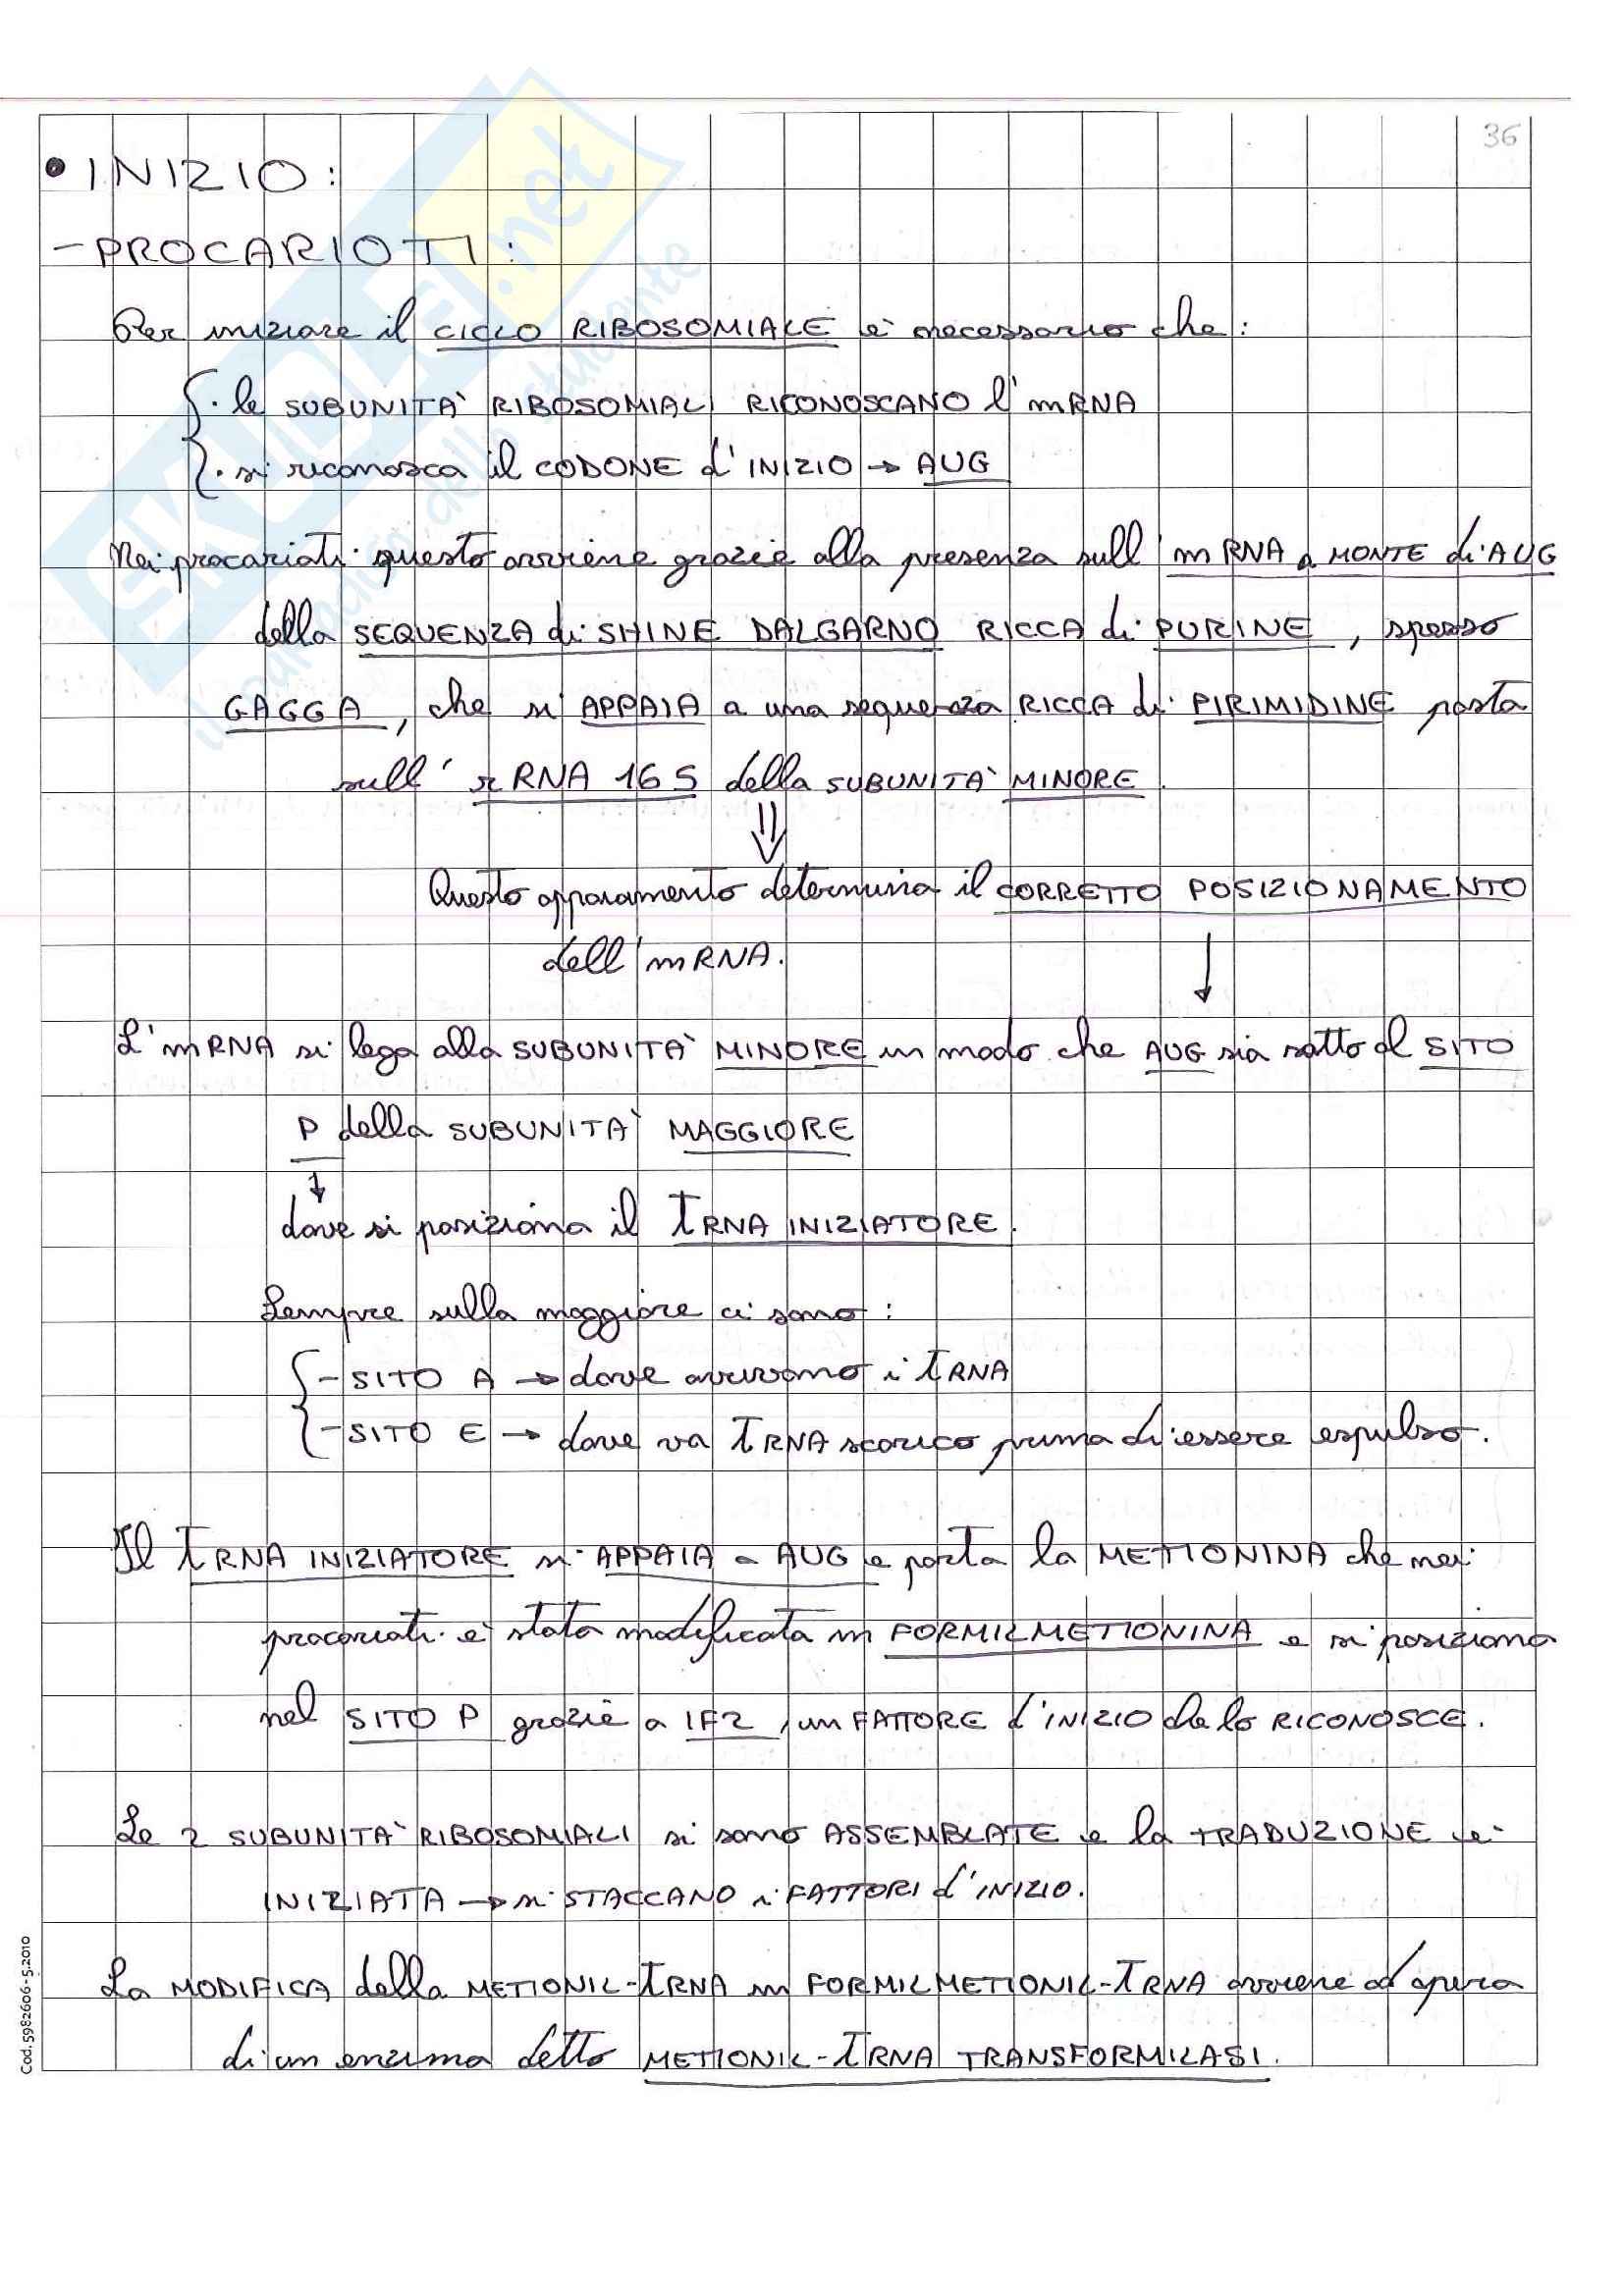 36
• INIZIO:
- PROCARIOTI:
Per iniziare il CICLO RIBOSOMIALE è necessario che:
· le SUBUNITA' RIBOSOMIALI RICONOSCANO l'mRNA
· si riconosca il CODONE d'INIZIO → AUG
Nei procarioti questo avviene grazie alla presenza sull'mRNA a MONTE di AUG
della SEQUENZA di SHINE DALGARNO RICCA di PURINE, spesso
GAGGA, che si APPAIA a una sequenza RICCA di PIRIMIDINE posta
sull'rRNA 16S della SUBUNITA' MINORE.
⇓
Questo appaiamento determina il CORRETTO POSIZIONAMENTO
dell'mRNA.
↓
L'mRNA si lega alla SUBUNITA' MINORE in modo che AUG sia sotto al SITO
P della SUBUNITA' MAGGIORE
↓
dove si posiziona il tRNA INIZIATORE.
Sempre sulla maggiore ci sono:
- SITO A → dove arrivano i tRNA
- SITO E → dove va tRNA scarico prima di essere espulso.
Il tRNA INIZIATORE si APPAIA a AUG e porta la METIONINA che nei
procarioti è stata modificata in FORMILMETIONINA e si posiziona
nel SITO P grazie a IF2, un FATTORE d'INIZIO che lo RICONOSCE.
Le 2 SUBUNITA' RIBOSOMIALI si sono ASSEMBLATE e la TRADUZIONE è
INIZIATA → si STACCANO i FATTORI d'INIZIO.
La MODIFICA della METIONIL-tRNA in FORMILMETIONIL-tRNA avviene ad opera
di un enzima detto METIONIL-tRNA TRANSFORMILASI.
Cod. 5982606 - 5.2010
SKUOLA.net
il paradiso dello studente